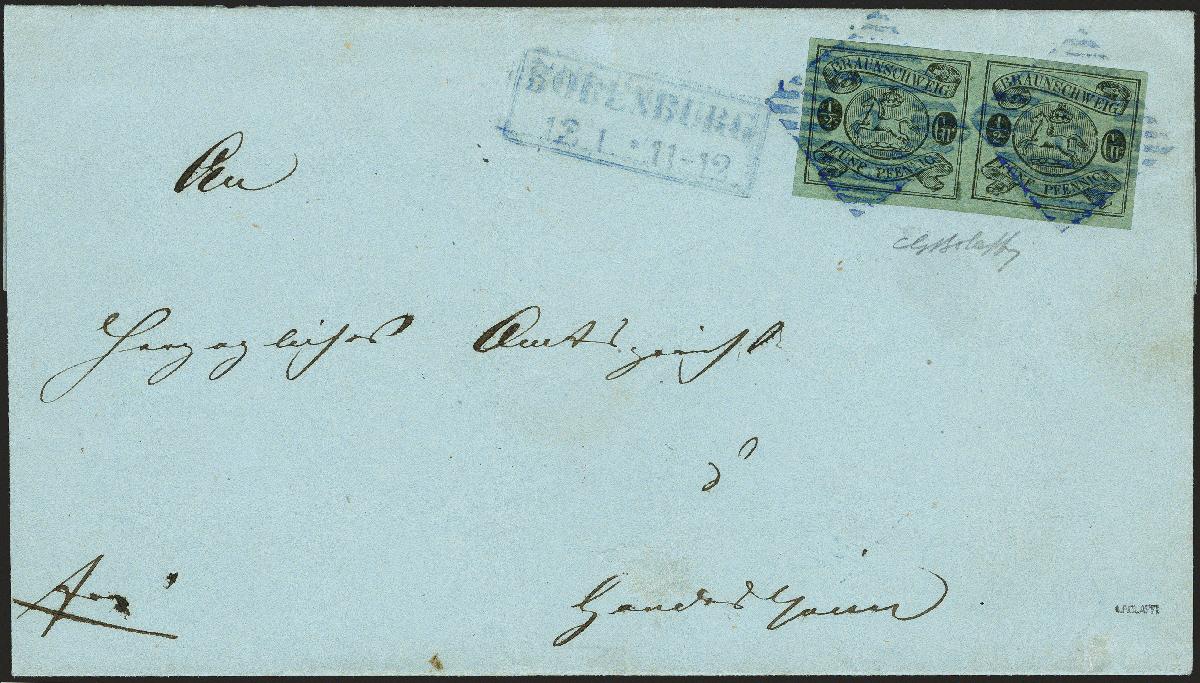 BODENBURG
12 1. * 11-12
BRAUNSCHWEIG
1/2 Gr
FÜNF PFENNIG
BRAUNSCHWEIG
1/2 Gr
FÜNF PFENNIG
An
Herzogliches Amtsgericht
Gandersheim